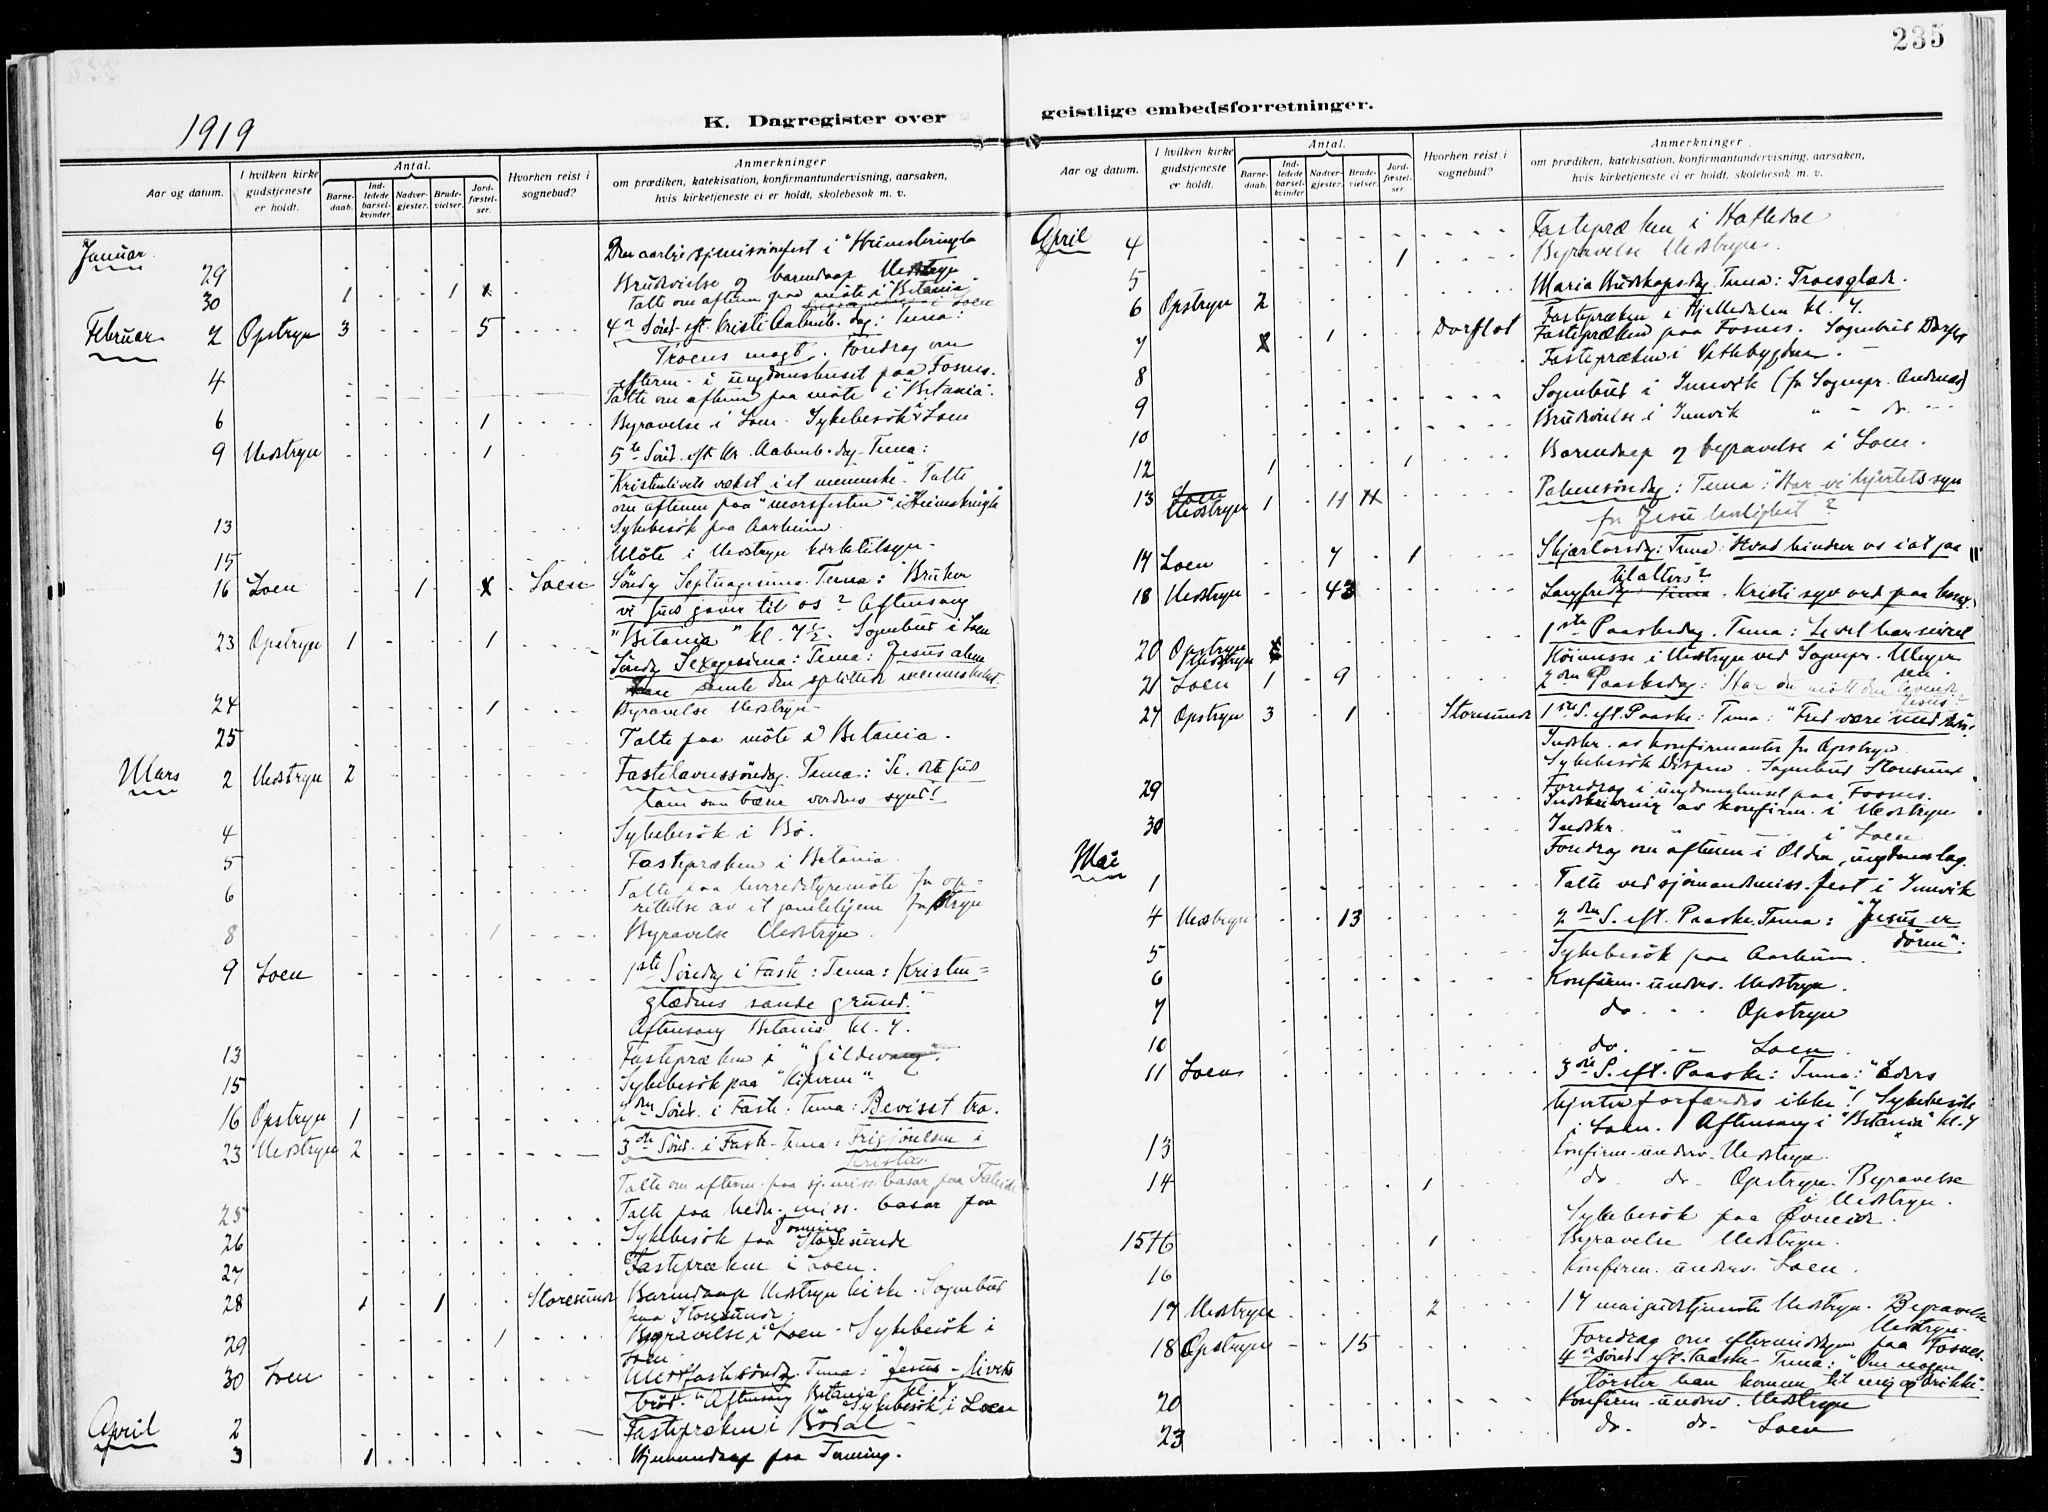 235
1919
K. Dagregister over
geistlige embedsforretninger.
Aar og datum.
I hvilken kirke gudstjeneste er holdt.
Antal.
Barnedaab.
Indledede barselkvinder
Nadvergjester.
Brudevielser.
Jordfæstelser.
Hvorhen reist i sognebud?
Anmerkninger
om prædiken, katekisation, konfirmantundervisning, aarsaken,
hvis kirketjeneste ei er holdt, skolebesok m. v.
Januar
29 Den aarlige sjømissionsfest i "Heimskringla
30 1 1 Brudvielse og barnedaap Nedstryn
Talte om aftenen paa møte i "Betania
Februar 2 Opstryn 3 5 4de Sønd. eft. Kristi Aabenb. dag: Tema:
Troens magt. Foredrag om
4 efterm. i ungdomshuset paa Fosnes.
Talte om aftenen paa møte i "Betania".
6 1 Begravelse i Loen. Sykebesøk i Loen
9 Nedstryn 1 5te Sønd. eft. Kr. Aabenb. dag. Tema:
"Kristenlivets vekst i et menneske." Talte
om aftenen paa "morsfesten" i Heimskringla
13 Sykebesøk paa Aarheim
15 Møte i Nedstryn kirketilsyn.
16 Loen 1 Loen Søndag Septuagesima. Tema: "Bruker
vi Guds gaver til os? Aftensang
"Betania" kl. 7½. Sognebud i Loen
23 Opstryn 1 1 Søndag Sexagesima: Tema: Jesus alene
kan samle den splittede menneskehet.
24 1 Begravelse Nedstryn
25 Talte paa møte i Betania.
Mars 2 Nedstryn 2 Fastelavnssøndag. Tema: "Se det Guds
lam som bærer verdens synd!
4 Sykebesøk i Bø.
5 Fastepræken i Betania.
6 Talte paa herredstyremøte for op-
rettelse av et gamlehjem for Stryn
8 1 Begravelse Nedstryn.
9 Loen 1ste Søndag i Faste: Tema: Kristen-
glædens sande grund."
Aftensang Betania kl. 7.
13 Fastepræken i "Gildevang".
15 Sykebesøk paa
16 Opstryn 1 2den Sønd. i Faste: Tema: Beviset tro.
23 Nedstryn 2 3die Sønd. i Faste. Tema: Frigjørelsen i
Kristus.
Talte om efterm. paa sj. miss. basar paa Faleide
25 Talte paa hedn. miss. basar paa
Tonning
26 Sykebesøk paa Storesunde
27 Fastepræken i Loen.
28 1 1 Storesunde Barnedaap Nedstryn kirke. Sognebud
paa Storesunde.
29 1 Begravelse i Loen. Sykebesøk i
Loen.
30 Loen Midfastesøndag. Tema: "Jesus - livets
brød." Aftensang Betania kl. 7
April 2 Sykebesøk i Loen
Fastepræken i Bødal
3 1 Hjemmedaap paa Tonning.
April 4 Fastepræken i Hatledal
5 1 Begravelse Nedstryn.
6 Opstryn 2 Maria Budskapsdag. Tema: Troesglæde.
Fastepræken i Hjelledalen kl. 7.
7 1 Dorflot Fastepræken paa Fosnes. Sognebud Dorflot
8 Fastepræken i Vetlebygden.
9 Sognebud i Innvik (for Sognepr. Andenæs)
10 Brudvielse i Innvik " - do. -
12 1 1 Barnedaap og begravelse i Loen.
13 Loen Nedstryn 1 11 Palmesøndag: Tema: "Har vi hjertets syn
for Jesu herlighet?
17 Loen 7 1 Skjærtorsdag: Tema: Hvad hindrer os i at gaa
til alters?
18 Nedstryn 43 Langfredag. Tema. Kristi syv ord paa korset.
20 Opstryn Nedstryn 1ste Paaskedag. Tema: Livet har seiret
Høimesse i Nedstryn ved Sognepr. Meyer
21 Loen 1 9 2den Paaskedag: Har du møtt den levende
Jesus?
27 Opstryn 3 1 Storesunde 1ste S. eft. Paaske: Tema: "Fred være med
Indskr. av konfirmanter for Opstryn
Sykebesøk Dispen. Sognebud Storesunde
29 Foredrag i ungdomshuset paa Fosnes.
Indskrivning av konfirm. i Nedstryn
30 Indskr. " i Loen
Mai Foredrag om aftenen i Olden, ungdomslag.
1 Talte ved sjømandsmiss. fest i Innvik
4 Nedstryn 13 2den S. eft. Paaske. Tema: "Jesus er
døren".
5 Sykebesøk paa Aarheim.
6 Konfirm. underv. Nedstryn.
7 do. - - Opstryn
10 do. - - Loen.
11 Loen 3die S. eft. Paaske: Tema: "Eders
hjerter forfærdes ikke"! Sykebesøk
i Loen. Aftensang i "Betania" kl. 7
13 Konfirm. underv. Nedstryn.
14 1 do. do. Opstryn. Begravelse
i Nedstryn.
Sykebesøk paa
15 1 Begravelse Nedstryn.
16 Konfirm. underv. Loen.
17 Nedstryn 2 17 maigudstjeneste Nedstryn. Begravelse
Nedstryn.
18 Opstryn 15 Foredrag om eftermiddagen paa Fosnes.
4de Sønd. eft. Paaske. Tema: "Om nogen
tørster han komme til mig og drikke".
20 Konfirm. underv. Nedstryn
23 do. do. Loen